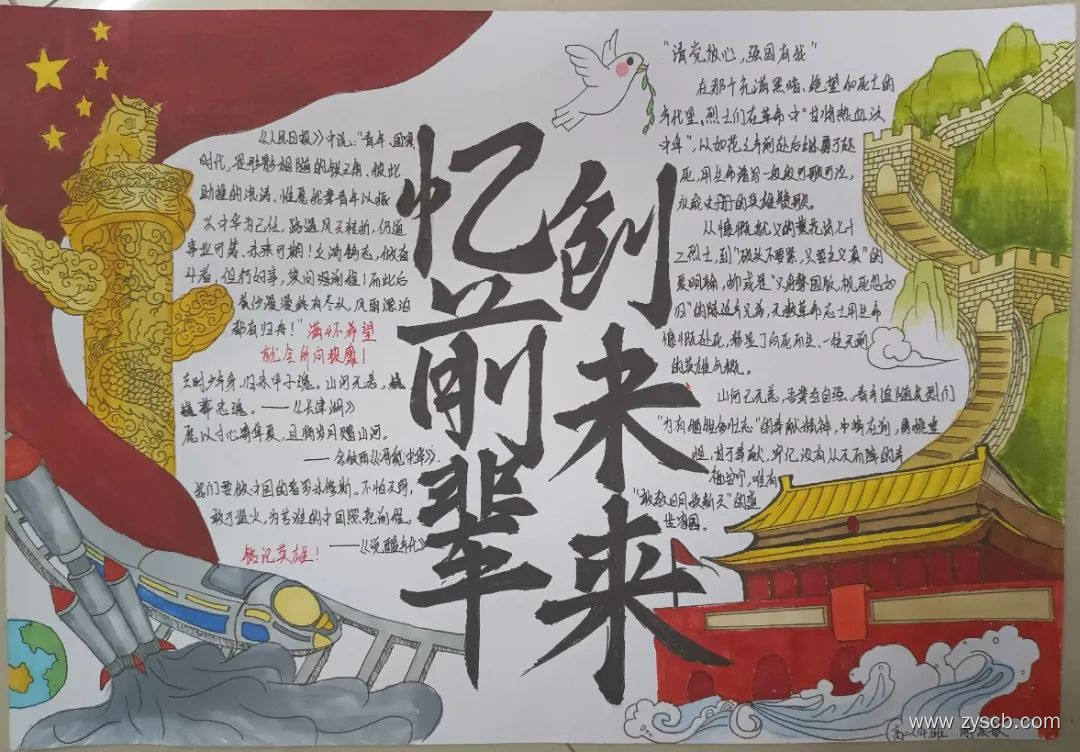 忆前辈
创未来
《人民日报》中说：“青年、国家
时代，是形影相随的铁三角，彼此
助推的浪涛。惟愿我辈青年以振
兴中华为己任，路遇风云挫折，仍道
事业可期，未来可期！立鸿鹄志，做奋
斗者，但行好事，莫问前程！而此后
长沙漫漫终有尽头，风雨漂泊
都有归舟！”满怀希望
就会所向披靡！
去时少年身，归来甲子魂。山河无恙，巍
巍葬忠魂。——《长津湖》
愿以寸心寄华夏，且将岁月赠山河。
——余敏雨《再龀中华》
我们要做中国的普罗米修斯。不怕天罚，
敢于盗火，为苦难的中国照亮前程。
——《觉醒年代》
铭记英雄！
“请党放心，强国有我”
在那个充满黑暗、绝望如死土的
年代里，烈士们在革命中“甘将热血沃
中华”，从如花之年前赴后继勇于赴
死，用生命谱写一段段可歌可泣，
永载史册的英雄赞歌。
从慷慨就义的黄花岗七十
二烈士，到“砍头不要紧，只要主义真”的
夏明翰，抑或是“只身赘国殇，视死忽如
归”的陈延年兄弟，无数革命志士用生命
慷慨赴死，彰显了向死而生、一往无前
的英雄气概。
山河已无恙，吾辈当自强。青年追随先烈们
“为有牺牲多壮志”的奉献精神，冲锋在前，勇挑重
担，甘于奉献，牢记没有从天而降的幸
福安宁，唯有
“敢教日月换新天”的盛
世家国。
www.zyscb.com